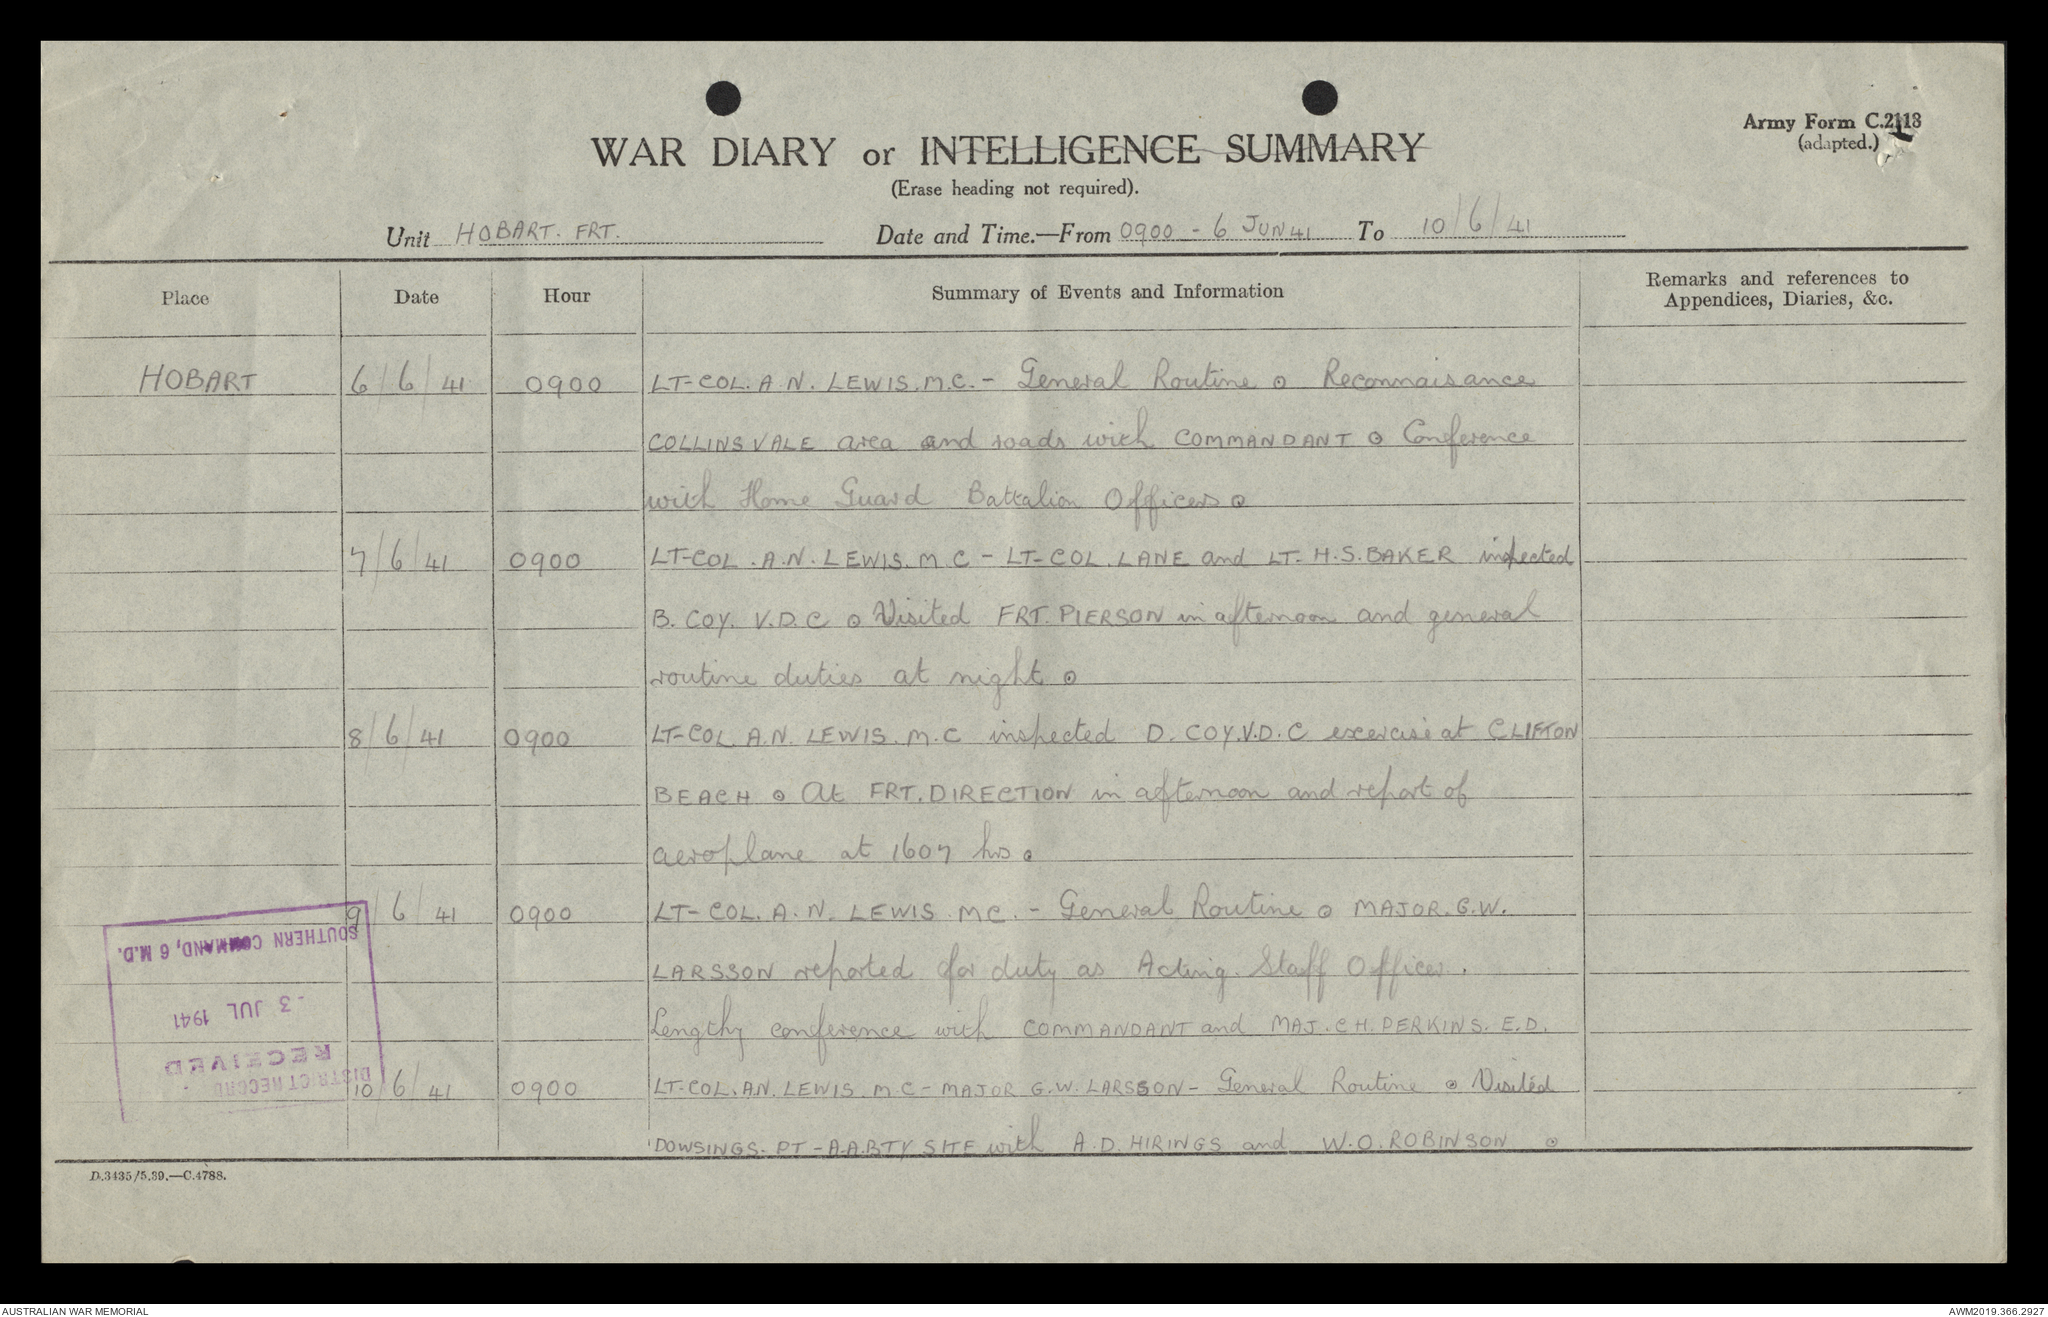 Army Form C.2118
(adapted.)
WAR DIARY or INTELLIGENCE SUMMARY
(Erase heading not required).
Unit HOBART. FRT. Date and Time.—From 0900 - 6 JUN 41 To 10/6/41
Place Date Hour Summary of Events and Information Remarks and references to
Appendices, Diaries, &c.
HOBART 6/6/41 0900 LT-COL. A.N. LEWIS. M.C. - General Routine ⊙ Reconnaisance
COLLINSVALE area and roads with COMMANDANT ⊙ Conference
with Home Guard Battalion Officers ⊙
7/6/41 0900 LT-COL. A.N. LEWIS. M.C - LT-COL. LANE and LT. H.S. BAKER inspected
B. COY. V.D.C ⊙ Visited FRT. PIERSON in afternoon and general
routine duties at night ⊙
8/6/41 0900 LT-COL A.N. LEWIS. M.C inspected D. COY. V.D.C exercise at CLIFTON
BEACH ⊙ At FRT. DIRECTION in afternoon and report of
aeroplane at 1607 hrs ⊙
9/6/41 0900 LT-COL. A.N. LEWIS MC. - General Routine ⊙ MAJOR. G.W.
LARSSON reported for duty as Acting Staff Officer.
Lengthy conference with COMMANDANT and MAJ. C H. PERKINS. E.D.
10/6/41 0900 LT-COL. A.N. LEWIS M.C - MAJOR G.W. LARSSON - General Routine ⊙ Visited
DOWSINGS. PT - A.A. BTY SITE with A.D. HIRINGS and W.O. ROBINSON ⊙
DISTRICT RECORD
RECEIVED
- 3 JUL 1941
SOUTHERN COMMAND, 6 M.D.
D.3435/5.39.—C.4788.
AUSTRALIAN WAR MEMORIAL AWM2019.366.2927